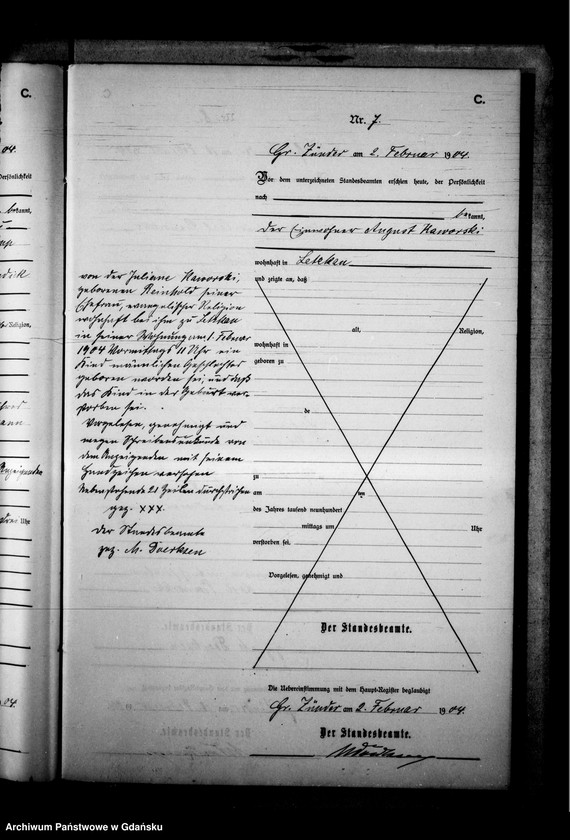 C.
C.
Nr. 7.
Gr. Zünder am 2. Februar 1904.
Vor dem unterzeichneten Standesbeamten erschien heute, der Persönlichkeit
nach
bekannt,
der Einwohner August Kaworski
wohnhaft in Letzkau
und zeigte an, daß
von der Juliane Kaworski,
geborenen Reinhold seiner
Ehefrau, evangelischer Religion
wohnhaft bei ihm zu Letzkau
in seiner Wohnung am 1. Februar
1904 Vormittags 11 Uhr ein
Kind männlichen Geschlechts
geboren worden sei, und daß
das Kind in der Geburt ver-
storben sei.
Vorgelesen, genehmigt und
wegen Schreibensunkunde von
dem Anzeigenden mit seinem
Handzeichen versehen
Nebenstehende 21 Zeilen durchstrichen
gez. XXX.
Der Standesbeamte
gez. M. Doerksen
alt, Religion,
wohnhaft in
geboren zu
de
zu
am um
des Jahres tausend neunhundert
mittags um Uhr
verstorben sei.
Vorgelesen, genehmigt und
Der Standesbeamte.
Die Uebereinstimmung mit dem Haupt-Register beglaubigt
Gr. Zünder am 2. Februar 1904.
Der Standesbeamte.
04.
Persönlichkeit
bekannt,
Religion,
Anzeigenden
Uhr
04.
Archiwum Państwowe w Gdańsku